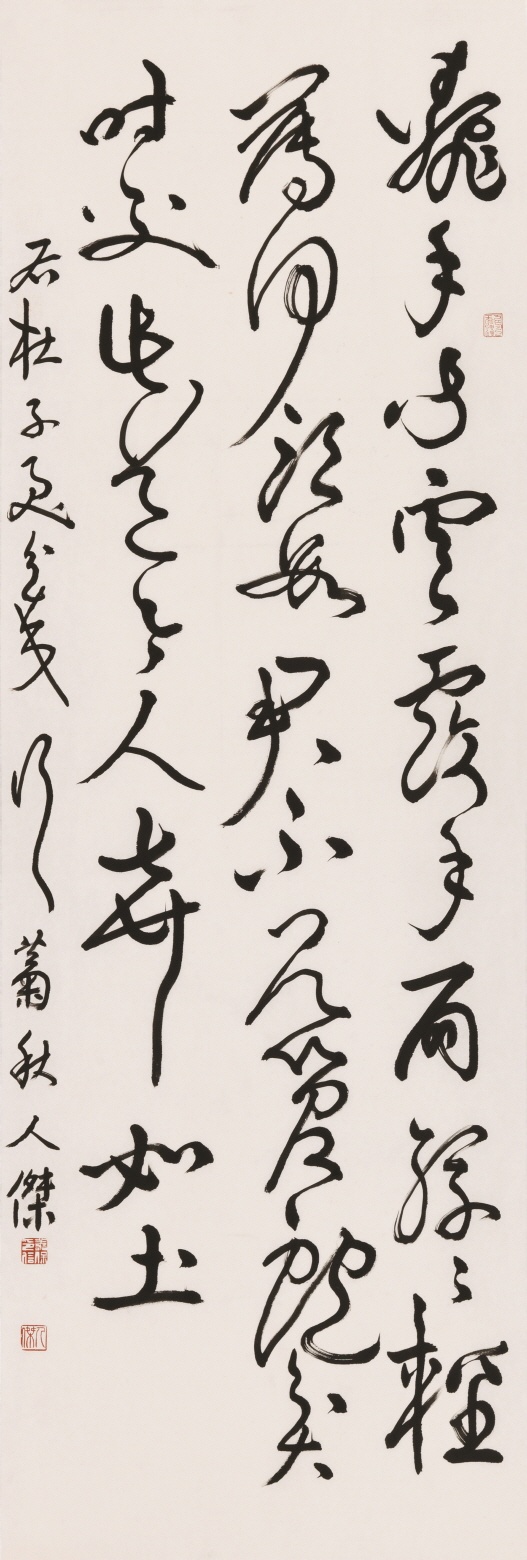 翻手作雲覆手雨紛〻輕
薄何須數君不見管鮑貧
時交此道今人棄如土
右杜子美貧交行 菊秋人傑